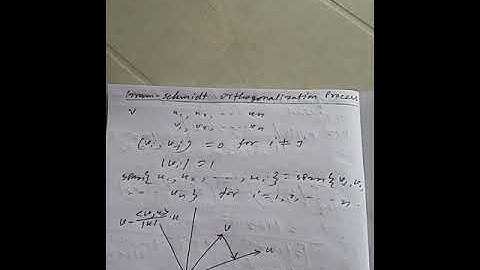 Gram-Schmidt orthogonalization Process
V u1, u2, ..... un
v1, v2, ..... vn
(vi, vj) = 0 for i ≠ j
|vi| = 1
span{u1, u2, ..., ui} = span{v1, v2,
for i = 1, 2, ... n
v - <v,u>/|u| . u
v
u